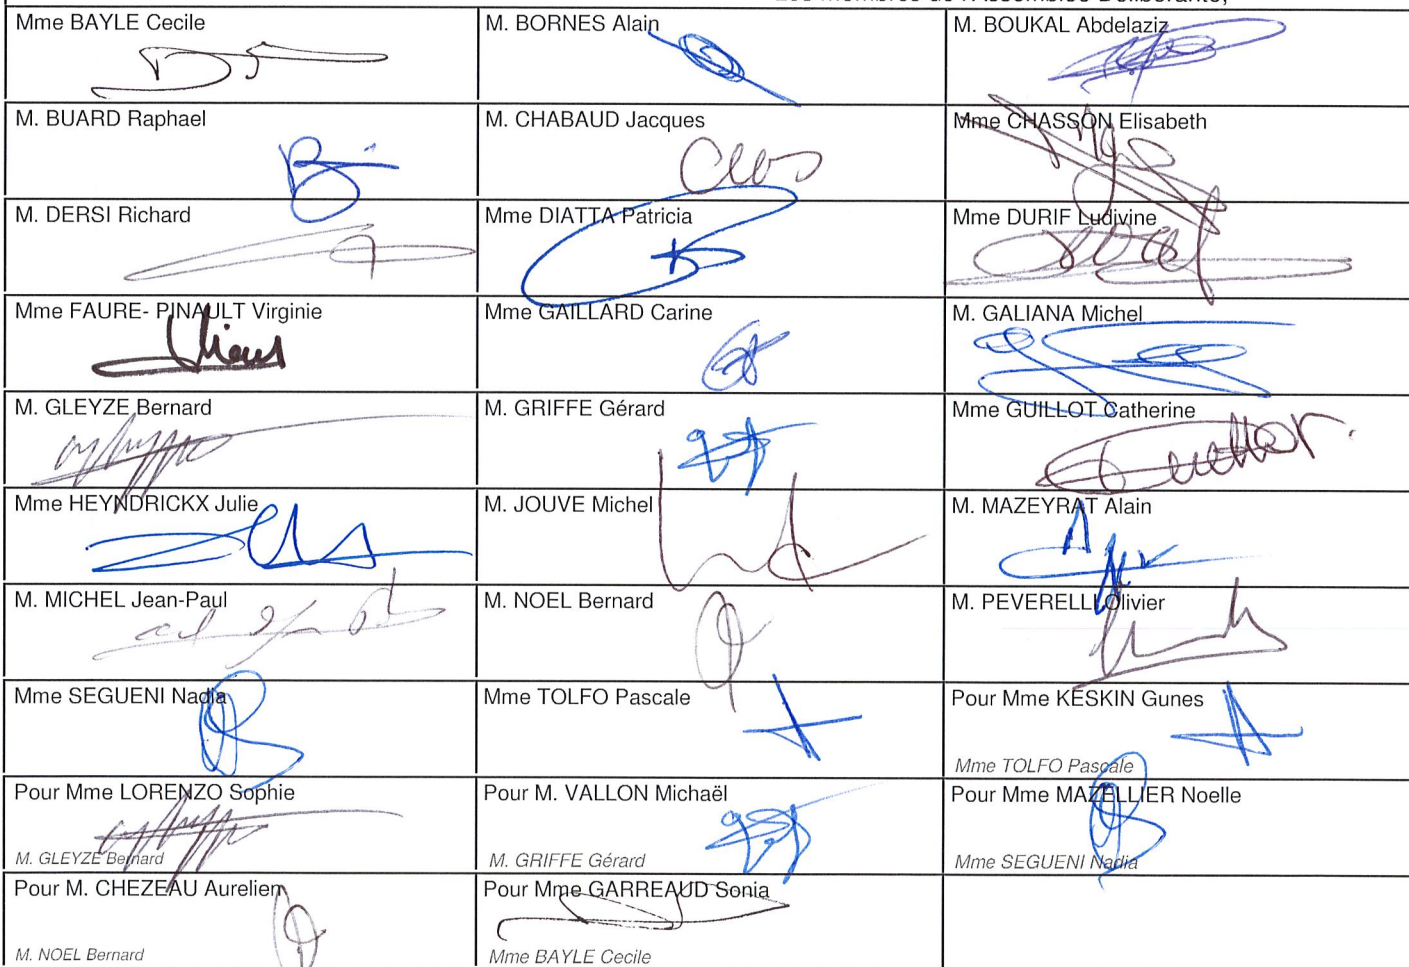 Mme BAYLE Cecile
M. BORNES Alain
M. BOUKAL Abdelaziz
M. BUARD Raphael
M. CHABAUD Jacques
Mme CHASSON Elisabeth
M. DERSI Richard
Mme DIATTA Patricia
Mme DURIF Ludivine
Mme FAURE- PINAULT Virginie
Mme GAILLARD Carine
M. GALIANA Michel
M. GLEYZE Bernard
M. GRIFFE Gérard
Mme GUILLOT Catherine
Mme HEYNDRICKX Julie
M. JOUVE Michel
M. MAZEYRAT Alain
M. MICHEL Jean-Paul
M. NOEL Bernard
M. PEVERELLI Olivier
Mme SEGUENI Nadia
Mme TOLFO Pascale
Pour Mme KESKIN Gunes
Mme TOLFO Pascale
Pour Mme LORENZO Sophie
M. GLEYZE Bernard
Pour M. VALLON Michaël
M. GRIFFE Gérard
Pour Mme MAZELLIER Noelle
Mme SEGUENI Nadia
Pour M. CHEZEAU Aurelien
M. NOEL Bernard
Pour Mme GARREAUD Sonia
Mme BAYLE Cecile